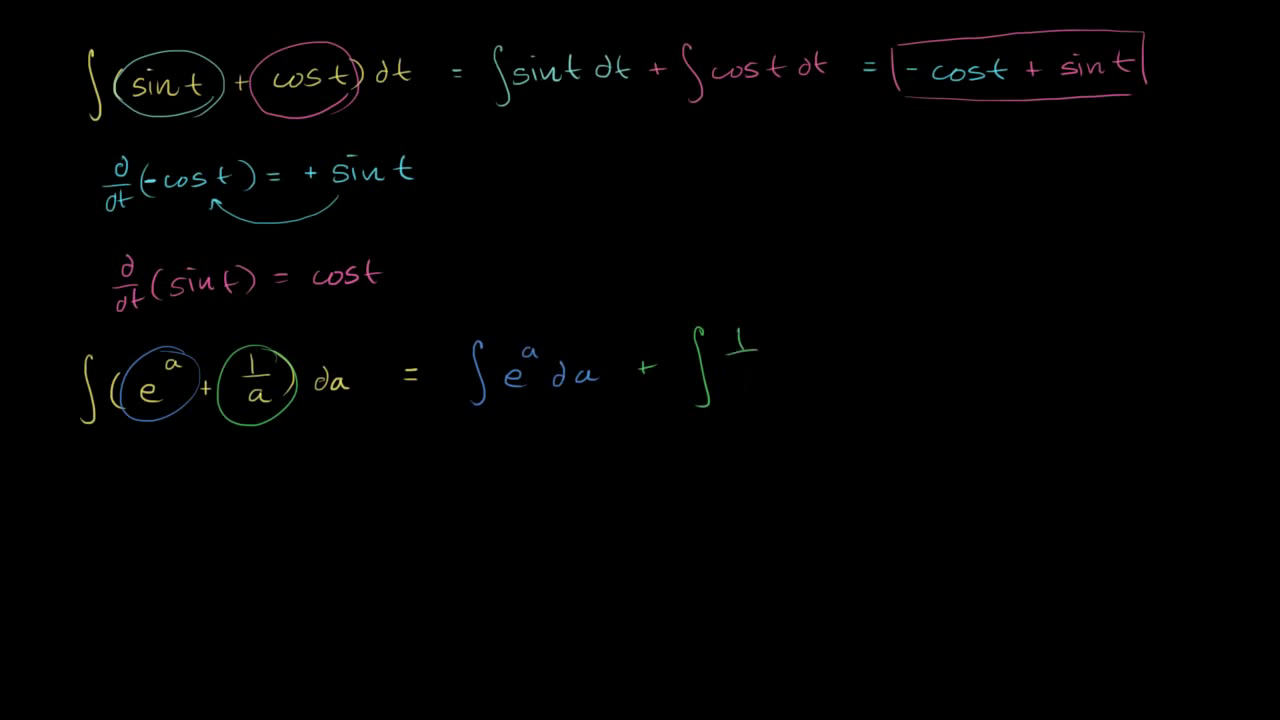 ∫ (sin t + cos t) dt = ∫ sin t dt + ∫ cos t dt = - cos t + sin t
d/dt (- cos t) = + sin t
d/dt (sin t) = cos t
∫ (e^a + 1/a) da = ∫ e^a da + ∫ 1